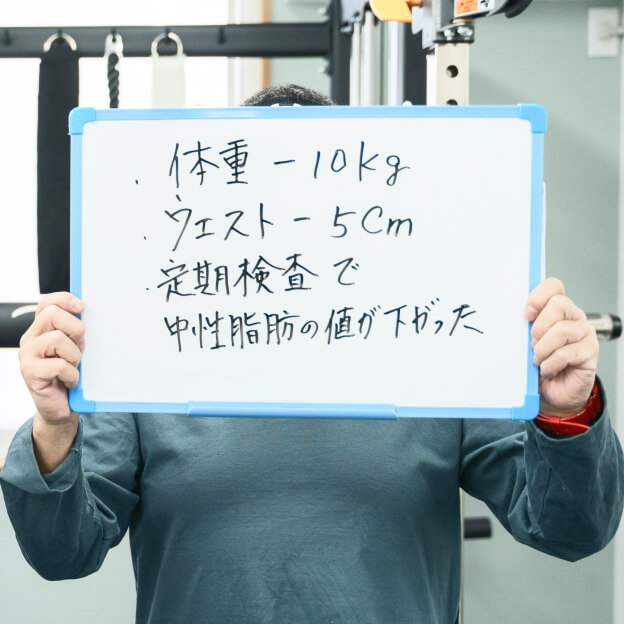 ・体重 -10kg
・ウエスト - 5cm
・定期検査で
中性脂肪の値が下がった